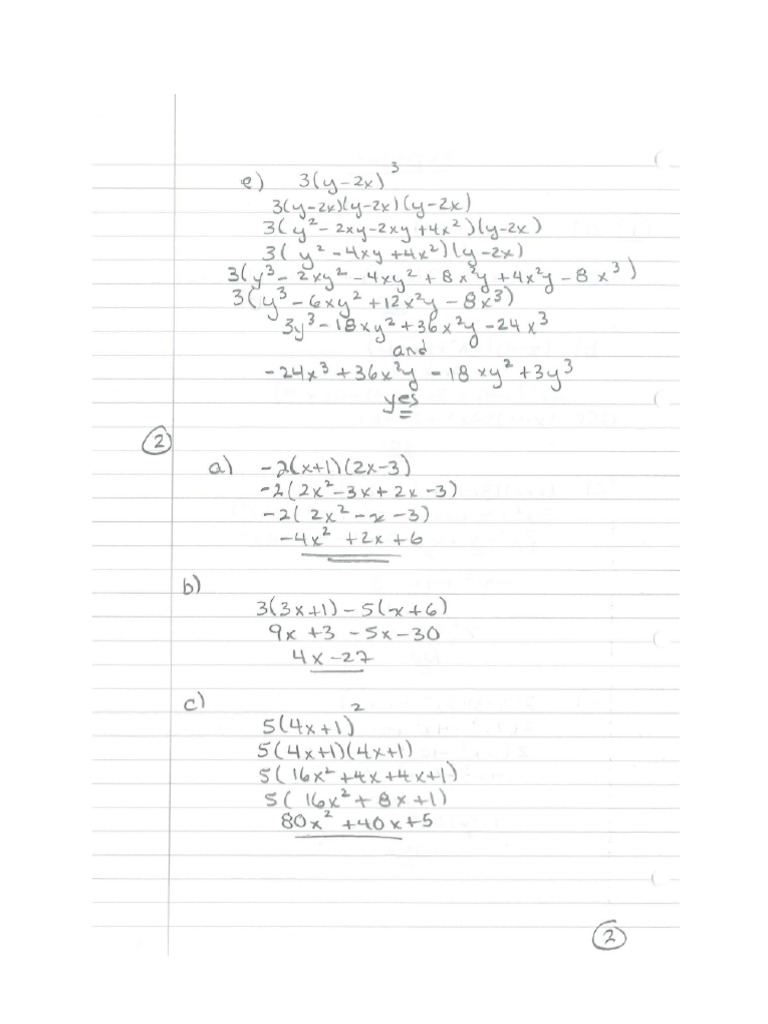 e) 3(y-2x)³
3(y-2x)(y-2x)(y-2x)
3(y²-2xy-2xy+4x²)(y-2x)
3(y²-4xy+4x²)(y-2x)
3(y³-2xy²-4xy²+8x²y+4x²y-8x³)
3(y³-6xy²+12x²y-8x³)
3y³-18xy²+36x²y-24x³
and
-24x³+36x²y-18xy²+3y³
yes
2
a) -2(x+1)(2x-3)
-2(2x²-3x+2x-3)
-2(2x²-x-3)
-4x²+2x+6
b)
3(3x+1)-5(x+6)
9x+3-5x-30
4x-27
c)
5(4x+1)²
5(4x+1)(4x+1)
5(16x²+4x+4x+1)
5(16x²+8x+1)
80x²+40x+5
2